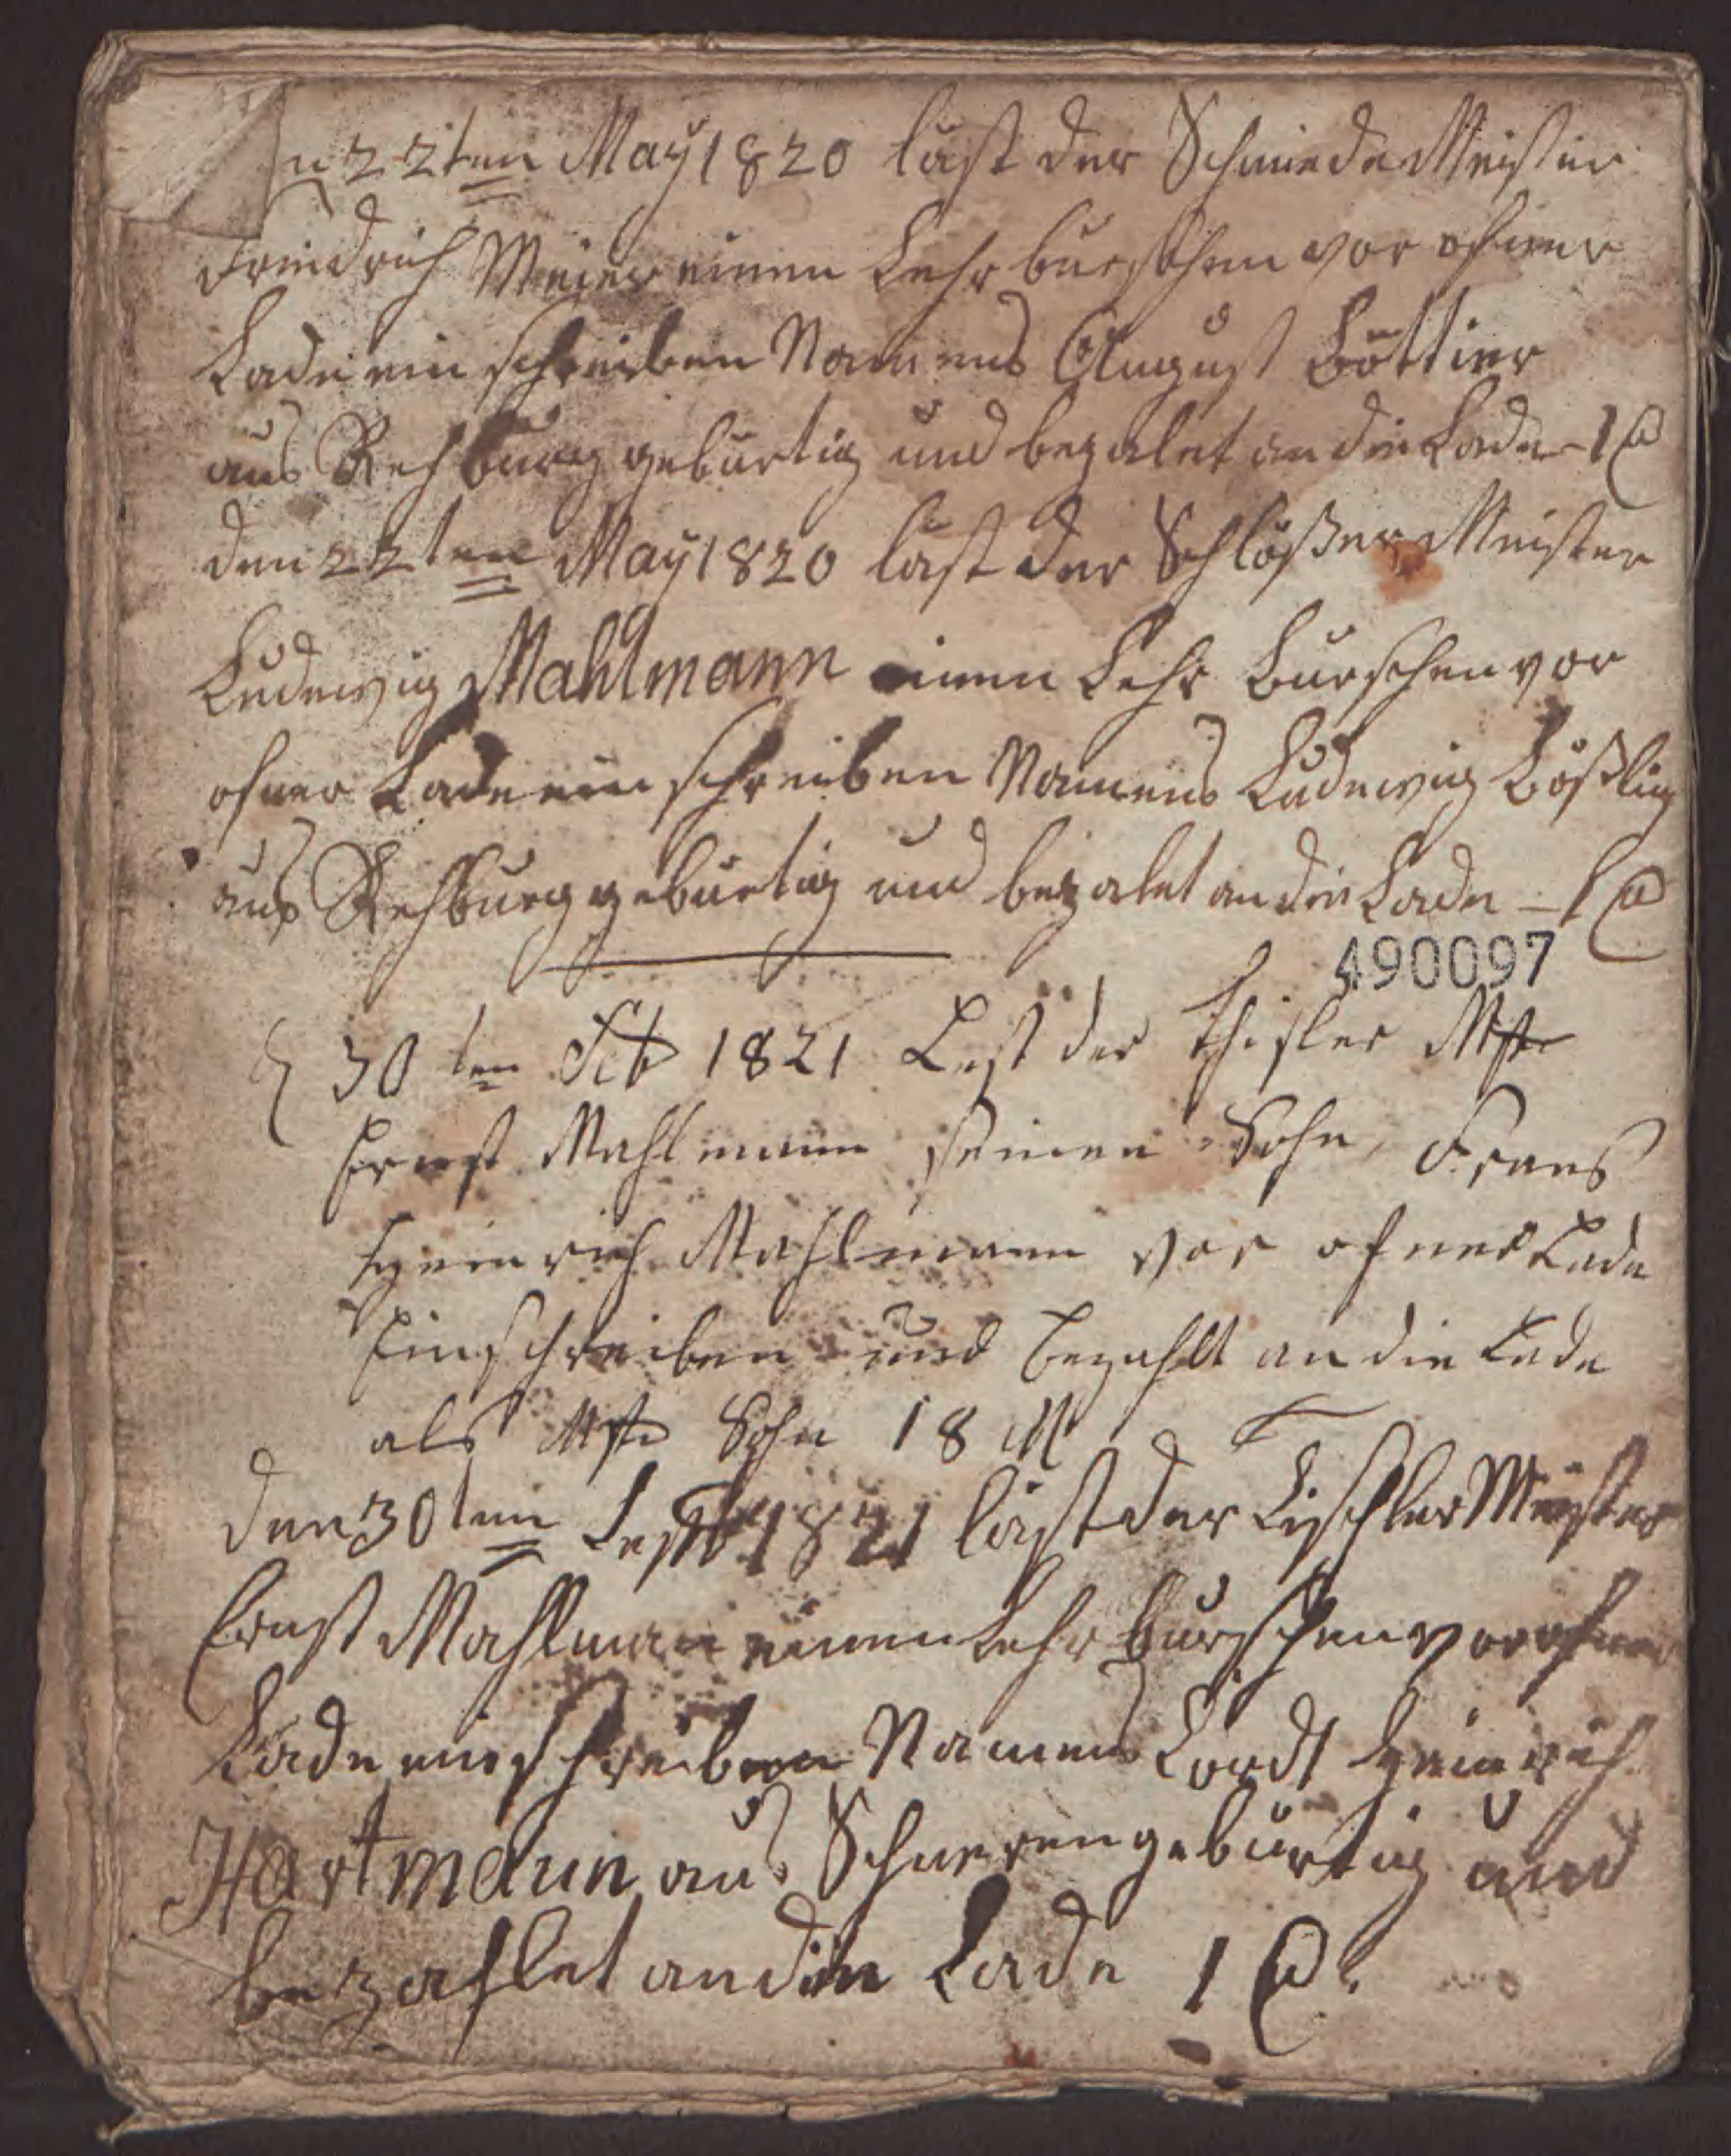 n 22ten May 1820 läst der Schmiede Meister
Friedrich Meier einen Lehr burschen vor ofner
Lade ein schreiben Namens August Böttier
aus Rehburg gebürtig und bezalet an die Lade - 1
den 22ten May 1820 läst der Schlößer Meister
Ludewig Mahlmann einen Lehr Burschen vor
ofner Lade ein schreiben Namens Ludewig Bößling
aus Rehburg gebürtig und bezalet an die Lade - 1
490097
30ten 1821 Lest der Thisler Mstr
Ernst Mahlmann seinen Sohn, Frans
Heinrich Mahlmann vor ofner Lade
Einschreiben und bezahlt an die Lade
als Mstr Sohn 18
den 30ten 1821 läst der Tischler Meister
Ernst Mahlman einen Lehr burschen vor ofner
Lade einschreiben Namens Cordt Heinrich
Hartmann aus Schneren gebürtig und
bezahlet an die Lade 1